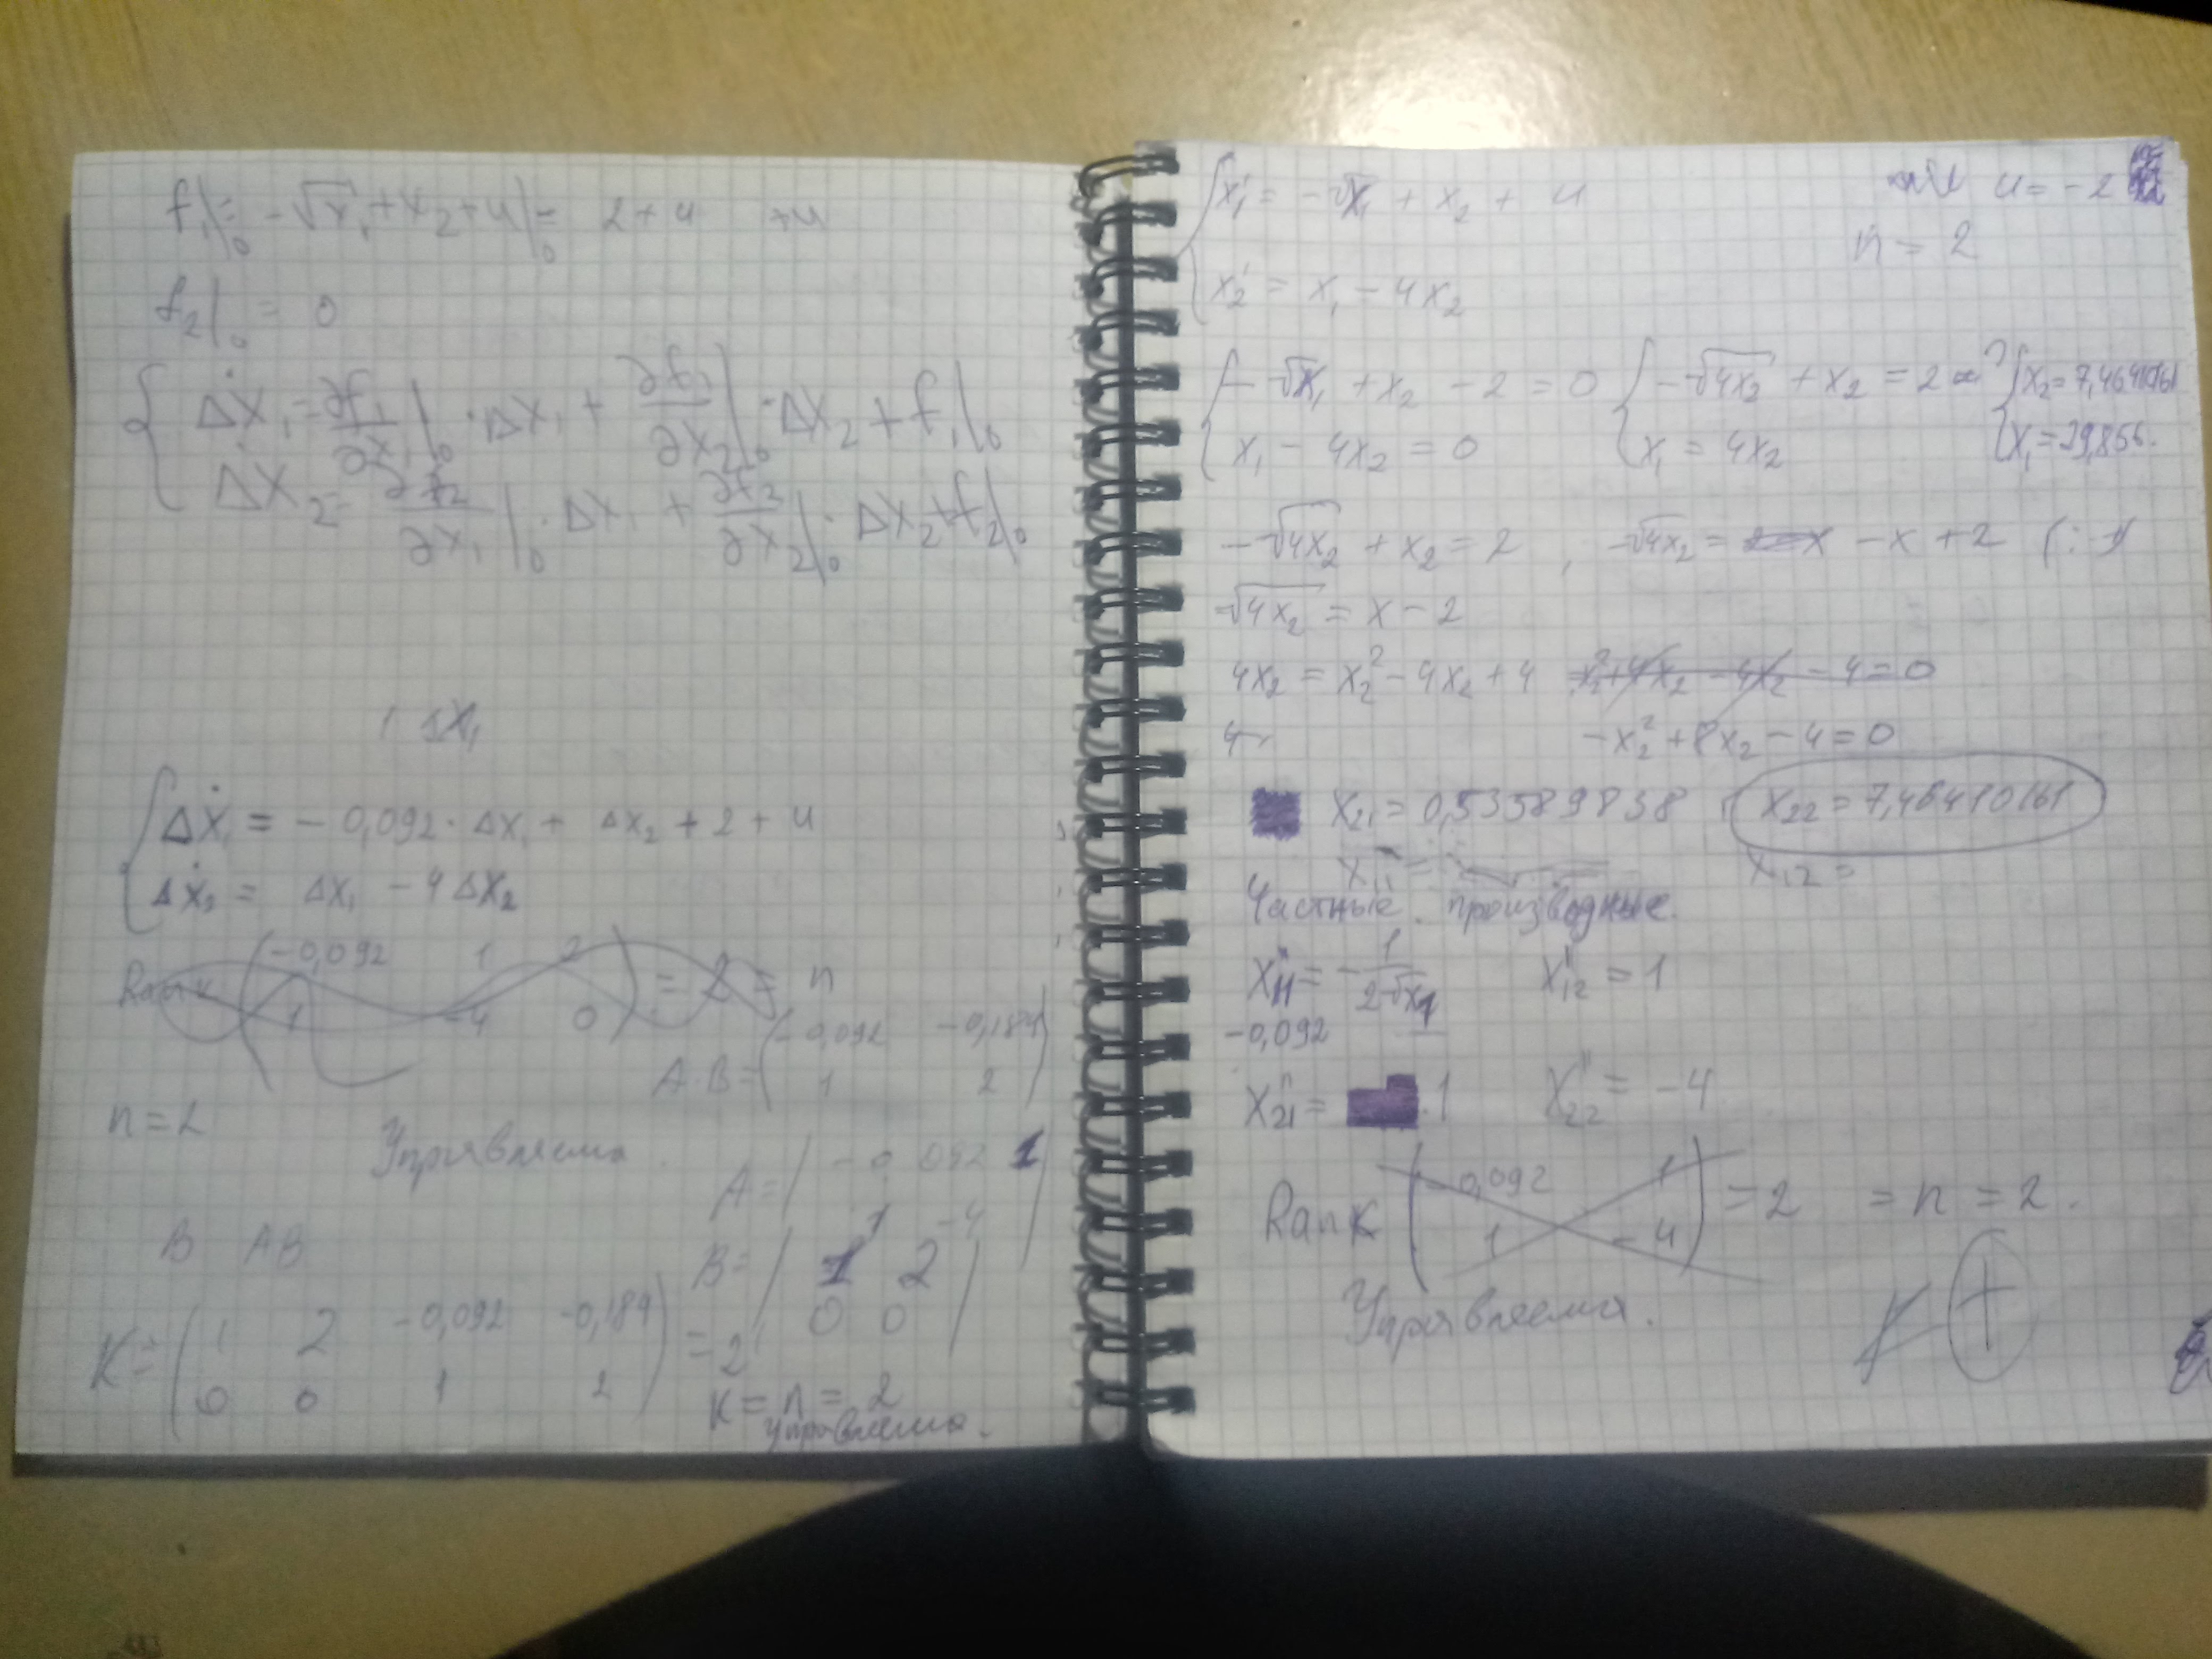 f₁|₀ = -√x₁ + x₂ + u|₀ = 2 + u +u
f₂|₀ = 0
Δẋ₁ = ∂f₁/∂x₁|₀ · Δx₁ + ∂f₁/∂x₂|₀ · Δx₂ + f₁|₀
Δẋ₂ = ∂f₂/∂x₁|₀ · Δx₁ + ∂f₂/∂x₂|₀ · Δx₂ + f₂|₀
Δẋ₁ = -0,092 · Δx₁ + Δx₂ + 2 + u
Δẋ₂ = Δx₁ - 4Δx₂
Rank (-0,092 1 2
1 -4 0) = 2 = n
A·B = (-0,092 -0,184
1 2)
n = 2
Управляема.
A = (-0,092 1
1 -4)
B = (1 2
0 0)
B AB
K = (1 2 -0,092 -0,184
0 0 1 2) = 2
K = n = 2
управляема.
x₁' = -√x₁ + x₂ + u
u = -2
n = 2
x₂' = x₁ - 4x₂
-√x₁ + x₂ - 2 = 0 -√4x₂ + x₂ = 2 x₂ = 7,46410161
x₁ - 4x₂ = 0 x₁ = 4x₂ x₁ = 29,856.
-√4x₂ + x₂ = 2 , -√4x₂ = -x + 2
√4x₂ = x - 2
4x₂ = x₂² - 4x₂ + 4 x₂² + 4x₂ - 4x₂ - 4 = 0
4 -x₂² + 8x₂ - 4 = 0
x₂₁ = 0,53589838 x₂₂ = 7,46410161
x₁₁ = x₁₂ =
Частные производные.
x₁₁'' = -1/(2√x₁) x₁₂'' = 1
-0,092
x₂₁'' = 1 x₂₂'' = -4
Rank (-0,092 1
1 -4) = 2 = n = 2.
Управляема.
+